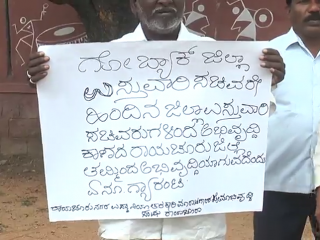 ಗೋಬ್ಯಾಕ್ ಜಿಲ್ಲಾ
ಉಸ್ತುವಾರಿ ಸಚಿವರೇ
ಹಿಂದಿನ ಜಿಲ್ಲಾ ಉಸ್ತುವಾರಿ
ಸಚಿವರುಗಳಿಂದ ಅಭಿವೃದ್ಧಿ
ಕಾಣದ ರಾಯಚೂರು ಜಿಲ್ಲೆ
ತಮ್ಮಿಂದ ಅಭಿವೃದ್ಧಿಯಾಗುವದೆಂದು
ಏನೂ ಗ್ಯಾರಂಟಿ
ರಾಯಚೂರು ನಗರ